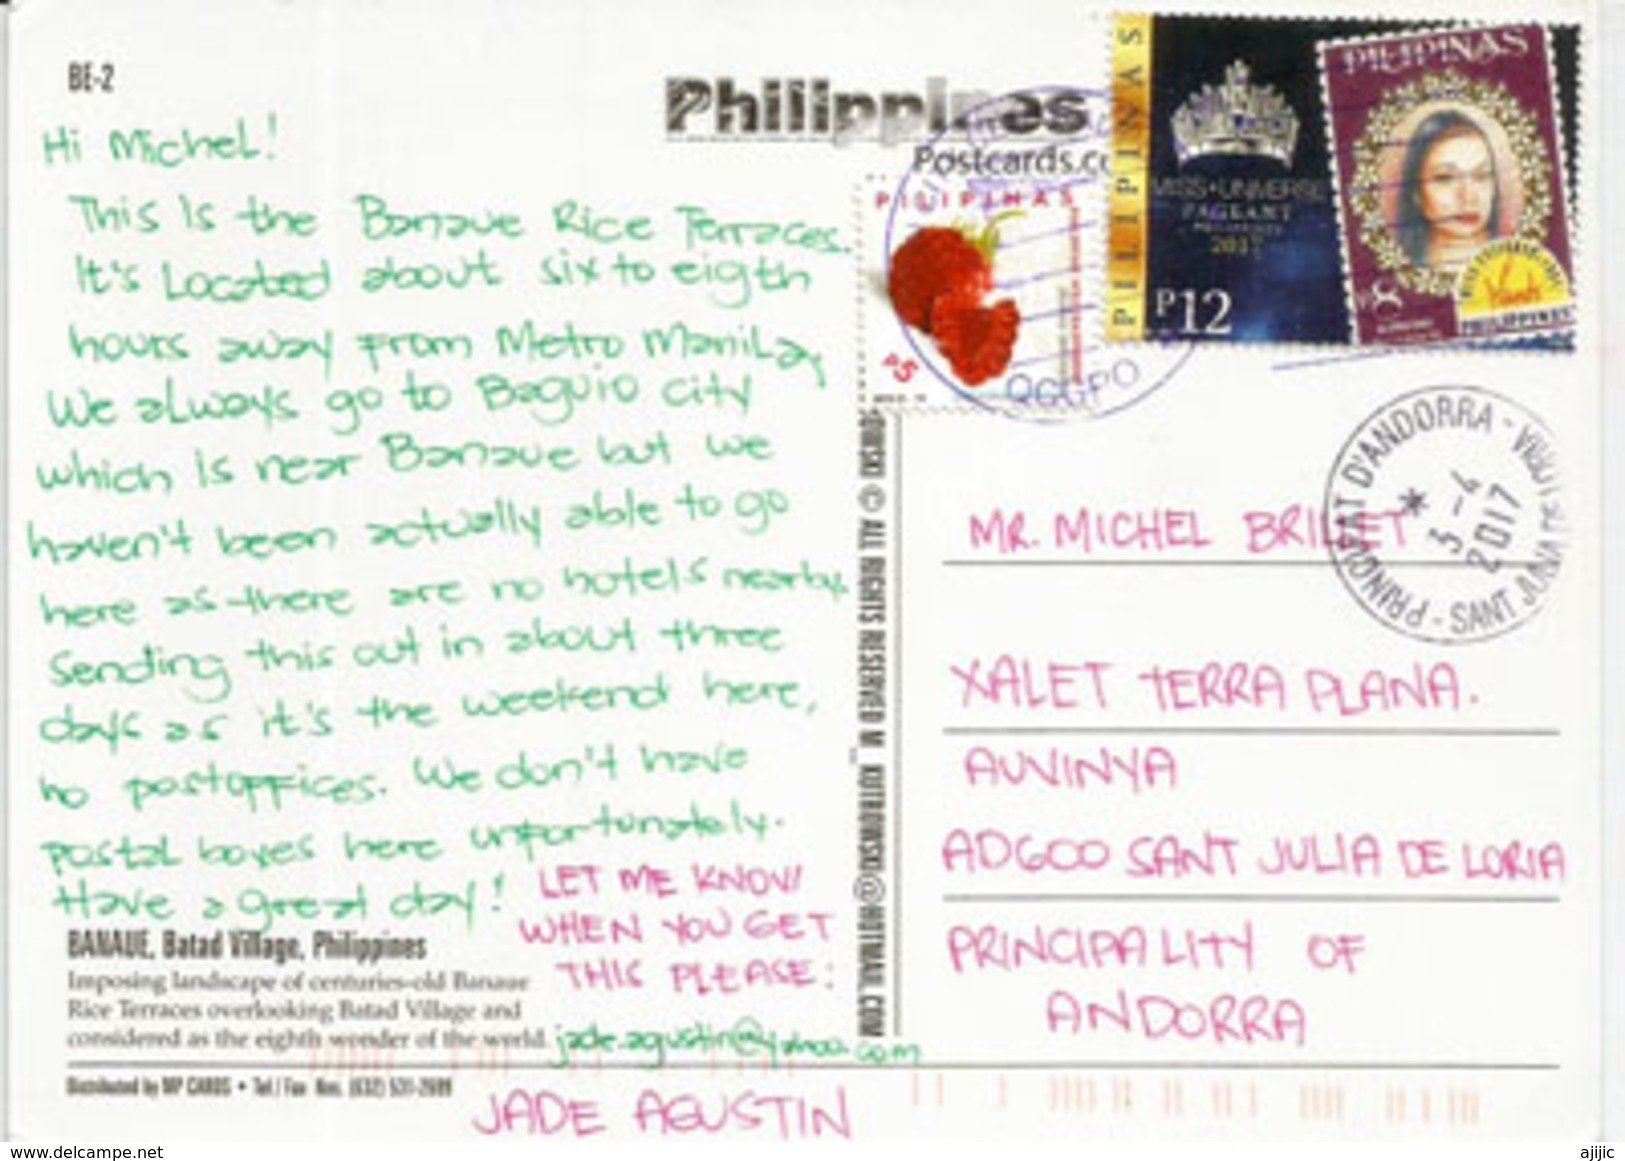 BE-2
Philippines
Postcards.co
Hi Michel!
This is the Banaue Rice Terraces.
It's Located about six to eigth
hours away from Metro Manila,
We always go to Baguio City
which is near Banaue but we
haven't been actually able to go
here as there are no hotels nearby.
Sending this out in about three
days as it's the weekend here,
no postoffices. We don't have
postal boxes here unfortunately.
Have a great day!
LET ME KNOW
WHEN YOU GET
THIS PLEASE:
jade.agustin@yahoo.com
JADE AGUSTIN
BANAUE, Batad Village, Philippines
Imposing landscape of centuries-old Banaue
Rice Terraces overlooking Batad Village and
considered as the eighth wonder of the world.
Distributed by MP CARDS • Tel / Fax Nos. (632) 531-2699
© ALL RIGHTS RESERVED M_KUTROWSKI@HOTMAIL.COM
PILIPINAS
P5
PILIPINAS
MISS•UNIVERSE
PAGEANT
2017
P12
PILIPINAS
8
PHILIPPINES
QCCPO
PRINCIPAT D'ANDORRA - SANT JULIA DE LORIA
3-4
2017
MR. MICHEL BRILLET
XALET TERRA PLANA.
AUVINYA
AD600 SANT JULIA DE LORIA
PRINCIPALITY OF
ANDORRA
www.delcampe.net
ajijic